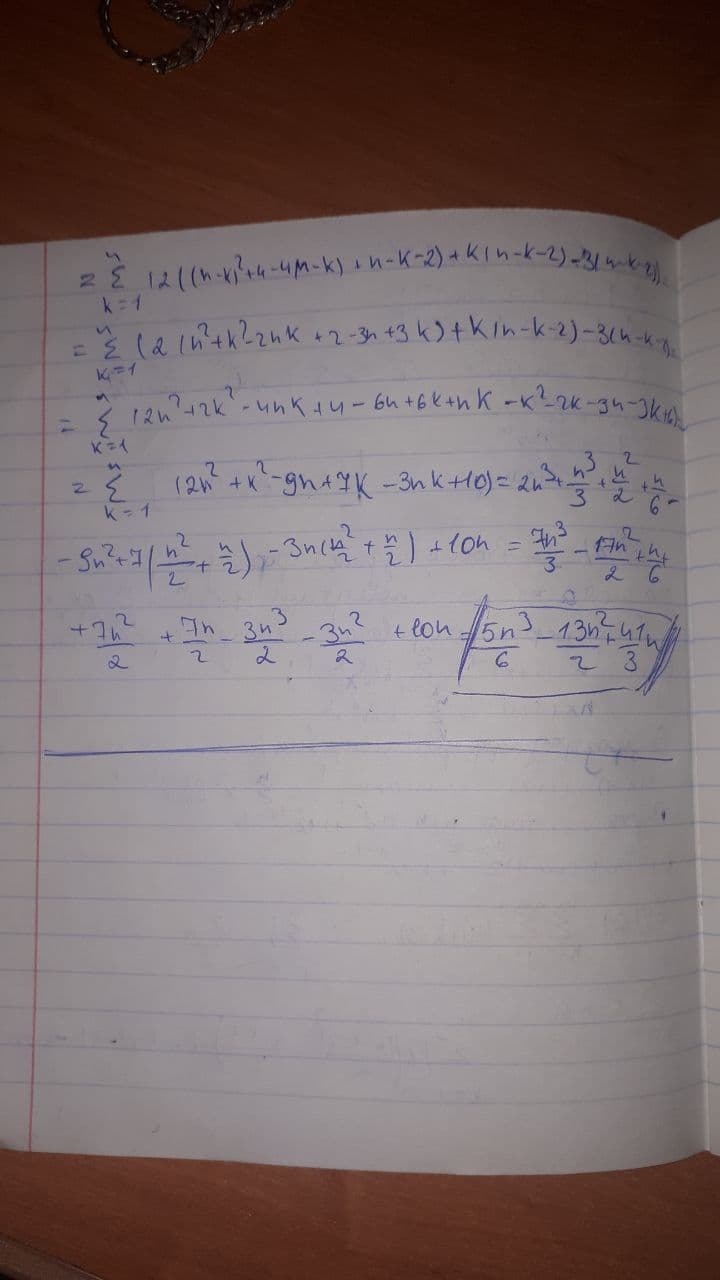 = n Σ k=1 (2((n-k)²+4-4(n-k)+n-k-2)+k(n-k-2)-3(n-k-2))=
= n Σ k=1 (2(n²+k²-2nk+2-3n+3k)+k(n-k-2)-3(n-k-2))=
= n Σ k=1 (2n²+2k²-4nk+4-6n+6k+nk-k²-2k-3n-3k+6)=
= n Σ k=1 (2n²+k²-9n+7k-3nk+10)=2n³+n³/3+n²/2+n/6-
-9n²+7(n²/2+n/2)-3n(n²/2+n/2)+10n=7n³/3-17n²/2+n/6+
+7n²/2+7n/2-3n³/2-3n²/2+10n=5n³/6-13n²/2+41n/3